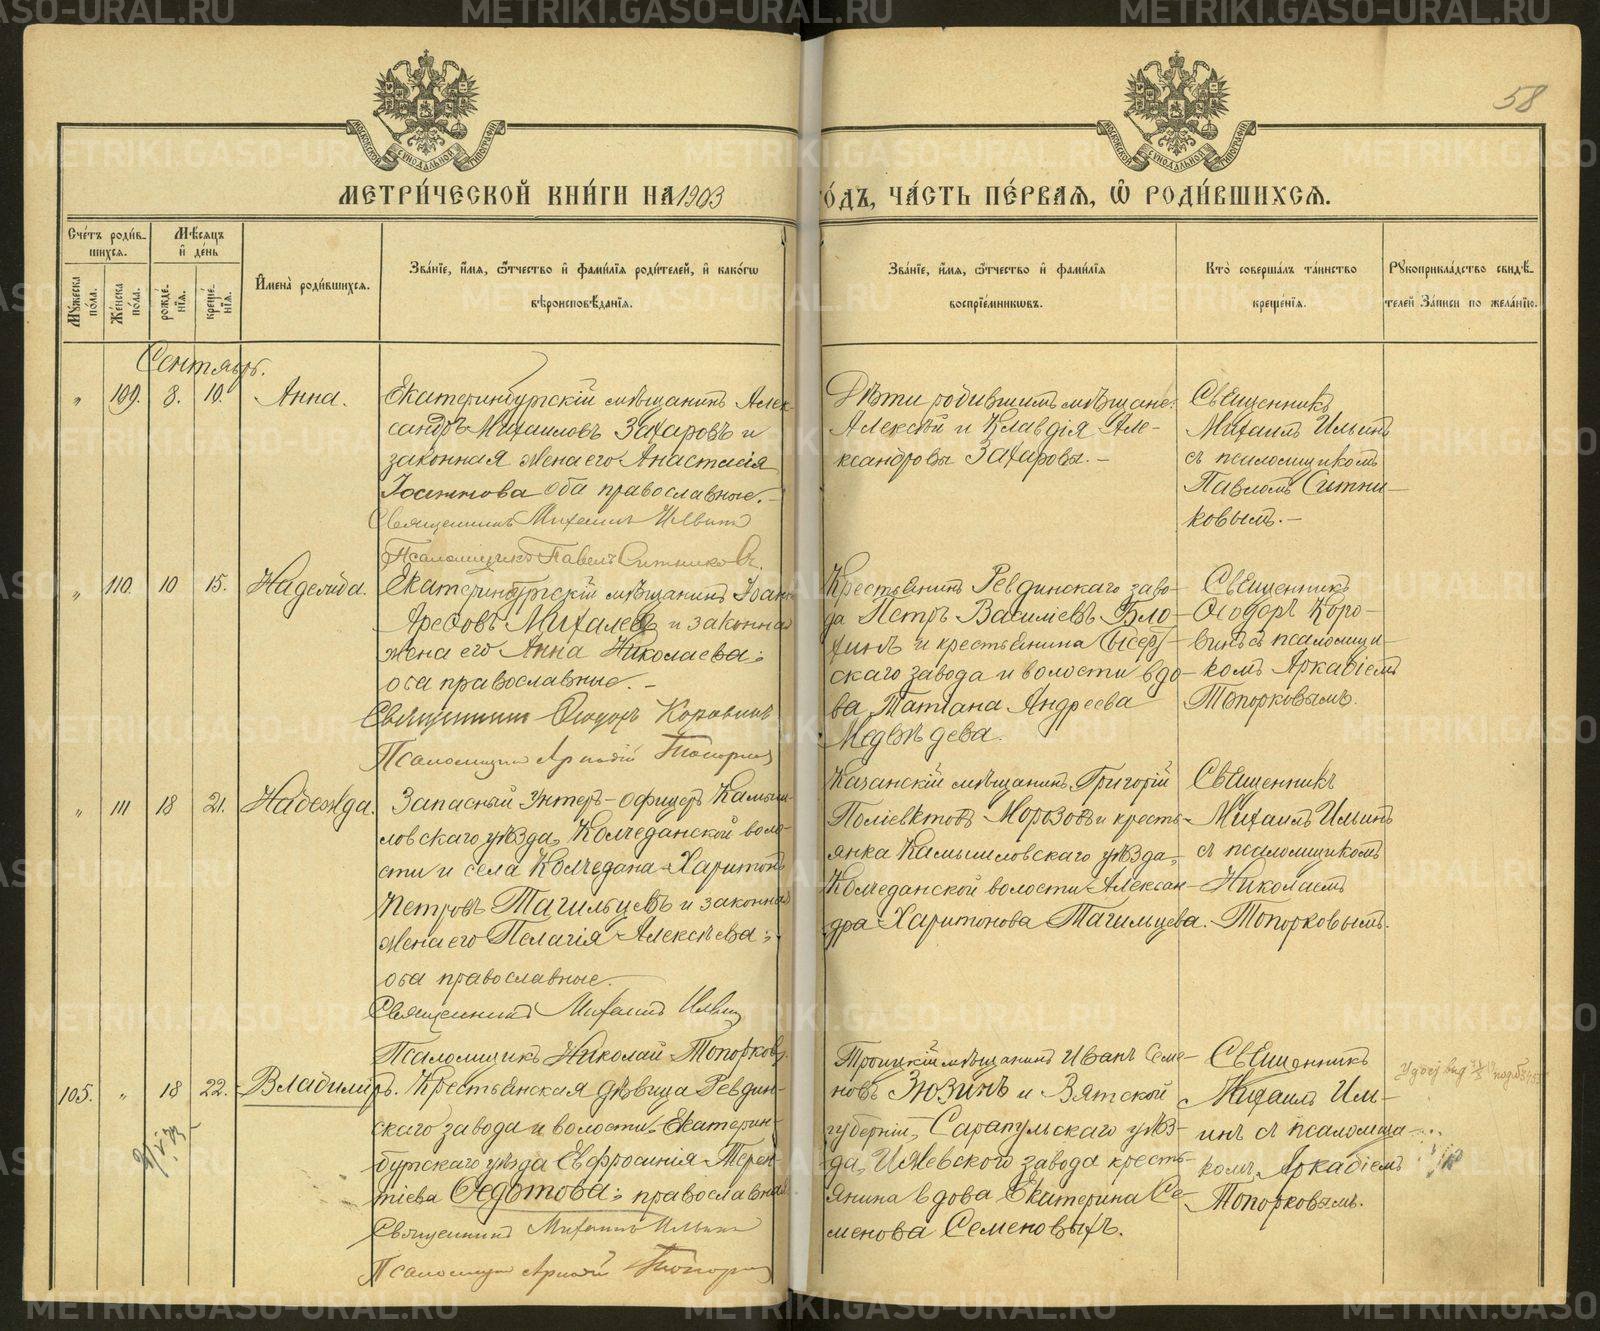 58
МЕТРИ́ЧЕСКОЙ КНИ́ГИ НА 1903
ГО́ДЪ, ЧА́СТЬ ПЕ́РВАЯ, Ѡ РОДИ́ВШИХСЯ.
Сче́тъ роди́в-
шихся.
Мꙋжеска
по́ла.
Же́нска
по́ла.
Мѣ́сяцъ
и҆ де́нь
рожде́-
нїя.
креще́-
нїя.
И҆мена̀ роди́вшихся.
Зва́нїе, и҆́мя, ѻ҆́тчество и҆ фами́лїя роди́телей, и҆ како́гѡ
вѣроисповѣ́данїя.
Зва́нїе, и҆́мя, ѻ҆́тчество и҆ фами́лїя
воспрїе́мниковъ.
Кто̀ соверша́лъ та́инство
креще́нїя.
Рꙋкоприкла́дство свидѣ́-
телей за́писи по жела́нїю.
Сентябрь.
„ 109. 8. 10. Анна.
Екатеринбургскій мѣщанинъ Алек-
сандръ Михаиловъ Захаровъ и
законная жена его Анастасія
Іоаннова оба православные. -
Священникъ Михаилъ Ильинъ
Псаломщикъ Павелъ Ситниковъ.
Дѣти родившихъ мѣщане
Алексѣй и Клавдія Але-
ксандровы Захаровы. -
Священникъ
Михаилъ Ильинъ
съ псаломщикомъ
Павломъ Ситни-
ковымъ. -
„ 110. 10 15. Надежда.
Екатеринбургскій мѣщанинъ Іоан
Арефовъ Михалевъ и законна
жена его Анна Николаева;
оба православные. -
Священникъ Ѳеодоръ Коровинъ
Псаломщикъ Аркадій Топорков
Крестьянинъ Ревдинскаго заво-
да Петръ Василіевъ Бло-
хинъ и крестьянина Сысерт-
скаго завода и волости вдо-
ва Татіана Андреева
Медвѣдева.
Священникъ
Ѳеодоръ Коро-
винъ съ псаломщи-
комъ Аркадіемъ
Топорковымъ.
„ 111 18 21. Надежда.
Запасный унтеръ-офицеръ Камыш-
ловскаго уѣзда, Колчеданской воло-
сти и села Колчедана Харитонъ
Петровъ Тагильцевъ и законна
жена его Пелагія Алексѣева;
оба православные.
Священникъ Михаилъ Ильин
Псаломщикъ Николай Топорков.
Казанскій мѣщанинъ Григорій
Поліевктовъ Морозовъ и кресть-
янка Камышловскаго уѣзда,
Колчеданской волости Алексан-
дра Харитонова Тагильцева. -
Священникъ
Михаилъ Ильинъ
съ псаломщикомъ
Николаемъ
Топорковымъ.
105. „ 18 22. Владиміръ.
Крестьянская дѣвица Ревдин-
скаго завода и волости, Екатерин-
бургскаго уѣзда Евфросинія Терен-
тіева Ѳедотова; православна
Священникъ Михаилъ Ильин
Псаломщик Аркадій Топорков
Троицкій мѣщанинъ Иванъ Семе-
новъ Зюзинъ и Вятской
губерніи, Сарапульскаго уѣз-
да, Ижевского завода кресть-
янина вдова Екатерина Се-
менова Семеновыхъ.
Священникъ
Михаилъ Иль-
инъ съ псаломщи-
комъ Аркадіемъ
Топорковымъ.